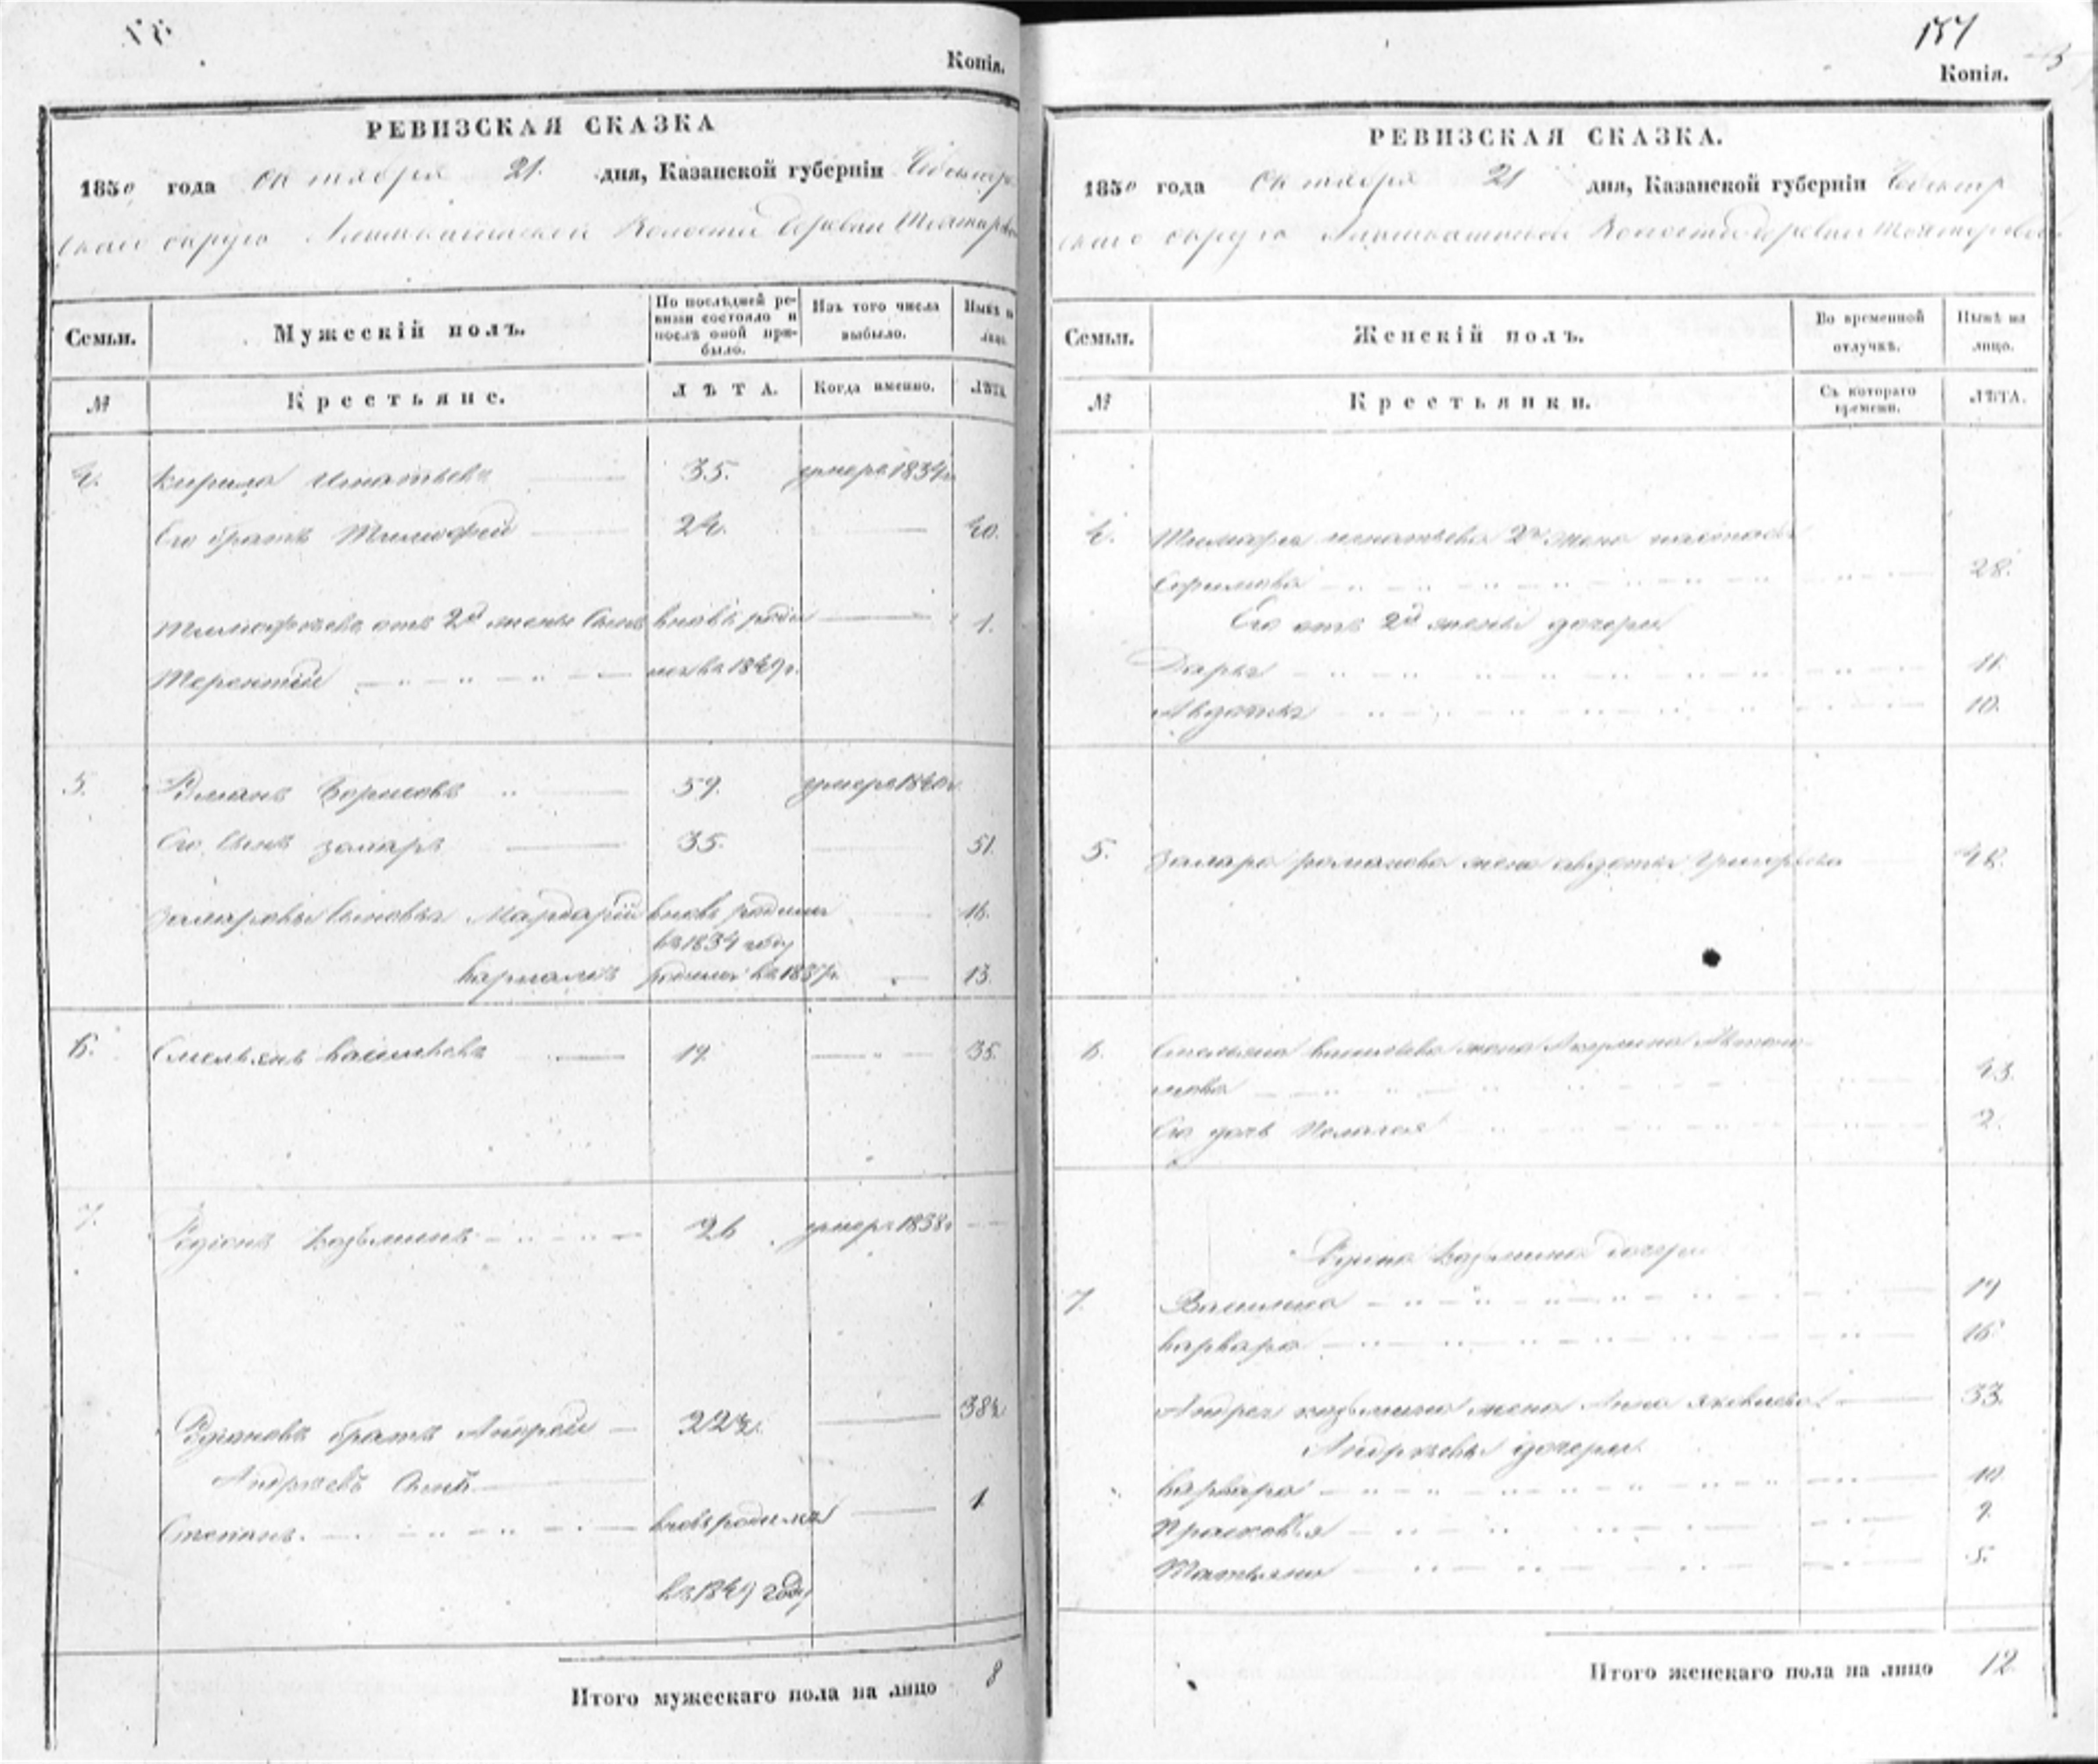 Копія.
РЕВИЗСКАЯ СКАЗКА
1850 года октября 21. дня, Казанской губерніи Чебоксар
скаго округа Волости деревни
Семьи. Мужескій полъ. По послѣдней ре-визіи состояло и послѣ оной при-было. Изъ того числа выбыло. Нынѣ на лицо.
№ Крестьяне. ЛѢТА. Когда именно. ЛѢТА
4. Кирила Игнатьевъ 35. умеръ 1834г.
Его братъ Тимофей 24. 40.
Тимофѣевъ отъ 2й жены сынъ вновь роди 1.
Терентій лся въ 1849г.
5. Романъ Борисовъ 59. умеръ 1840г.
Его сынъ Захаръ 35. 51.
Захаровы сыновья Мардарій вновь родился 16.
въ 1834 году
Варламъ родился въ 1837г. 13.
6. Емельянъ Васильевъ 19. 35.
7. Родіонъ Козьминъ 26 умеръ 1838г
Родіоновъ братъ Андрей 22¾. 38¾
Андреевъ сынъ
Степанъ. вновь родился 1
въ 1849 году
Итого мужескаго пола на лицо 8
157
Копія.
РЕВИЗСКАЯ СКАЗКА.
1850 года октября 21 дня, Казанской губерніи Чебоксар
скаго округа Волости деревни
Семьи. Женскій полъ. Во временной отлучкѣ. Нынѣ на лицо.
№ Крестьянки. Съ котораго времени. ЛѢТА.
4. Тимофея Игнатьева 2я жена Настасья
Ефимова 28.
Его отъ 2й жены дочери
Дарья 11.
Авдотья 10.
5. Захара Романова жена Авдотья Григорьева 48.
6. Емельяна Васильева жена Акулина
43.
Его дочь Пелагея 2.
Родіона Козьмина дочери
7. Василиса 19
Варвара 16
Андрея Козьмина жена Анна Яковлева 33.
Андреевы дочери
Варвара 10
Прасковья 9.
Татьяна 5.
Итого женскаго пола на лицо 12